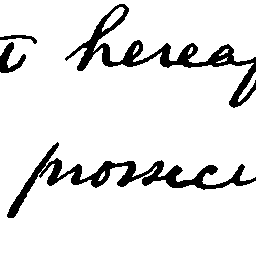 t hereaf
prossecu